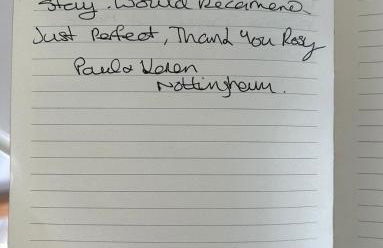 Stay. Would Recamend
Just Perfect, Thank You Rosy
Paul & Karen
Nottingham.